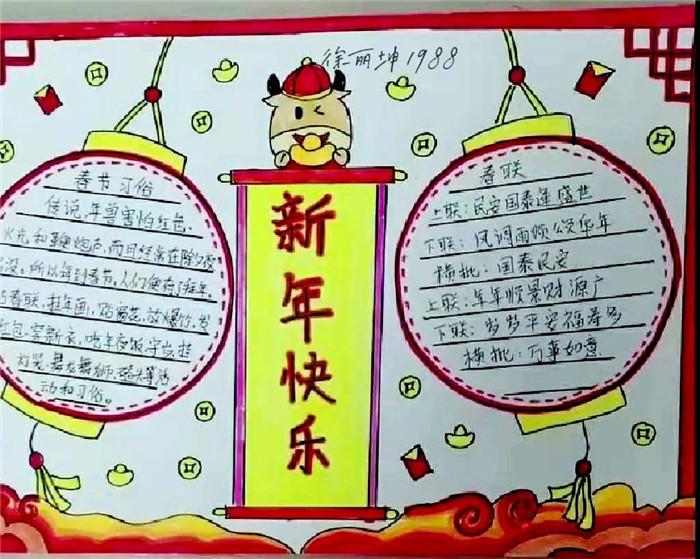 徐丽坤1988
新年快乐
春节习俗
传说,年兽害怕红色、
火光和鞭炮声,而且经常在除夕夜
没。所以每到春节,人们便有了拜年、
春联、挂年画、贴窗花、放爆竹、发
红包、穿新衣、吃年夜饭、守岁、挂
灯笼、舞龙舞狮、等活
动和习俗。
春联
上联:民安国泰逢盛世
下联:风调雨顺颂华年
横批:国泰民安
上联:年年顺景财源广
下联:岁岁平安福寿多
横批:万事如意